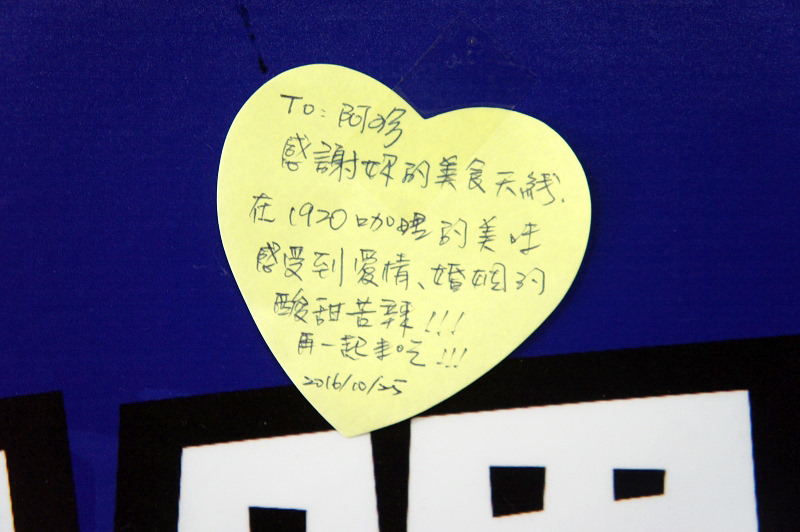 To: 阿珍
感謝妳的美食天線.
在1920咖哩的美味
感受到愛情、婚姻的
酸甜苦辣!!!
再一起來吃!!!
2016/10/25